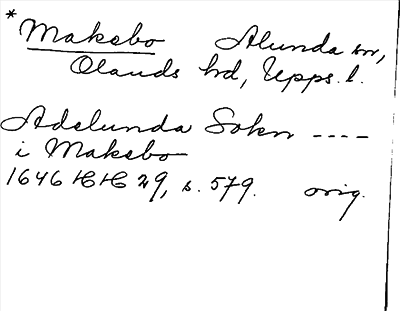 * Maksbo Alunda sn,
Olands hd, Upps. l.
Adelunda Sokn ----
i Maksbo
1646 HH 29, s. 579. orig.